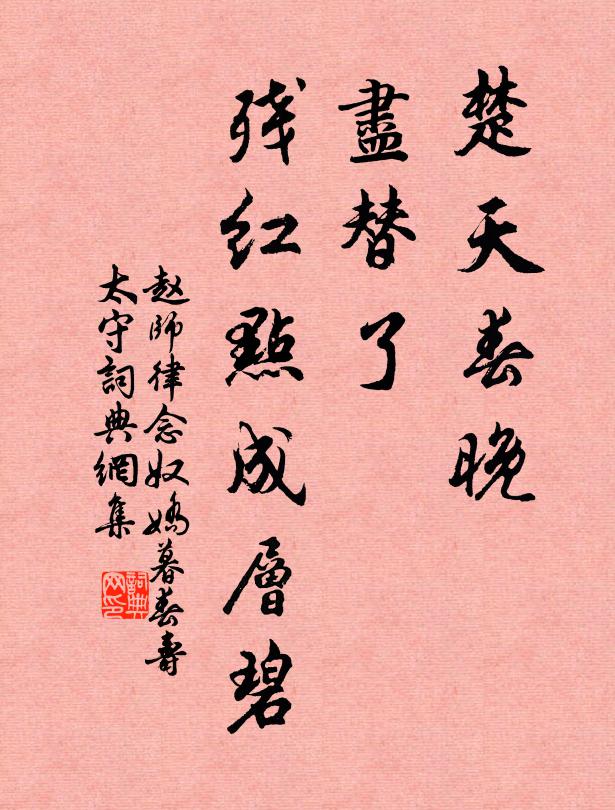 楚天春晚
盡替了
残红點成層碧
赵師律念奴嬌暮春壽
太守詞典網集
詞典
网印